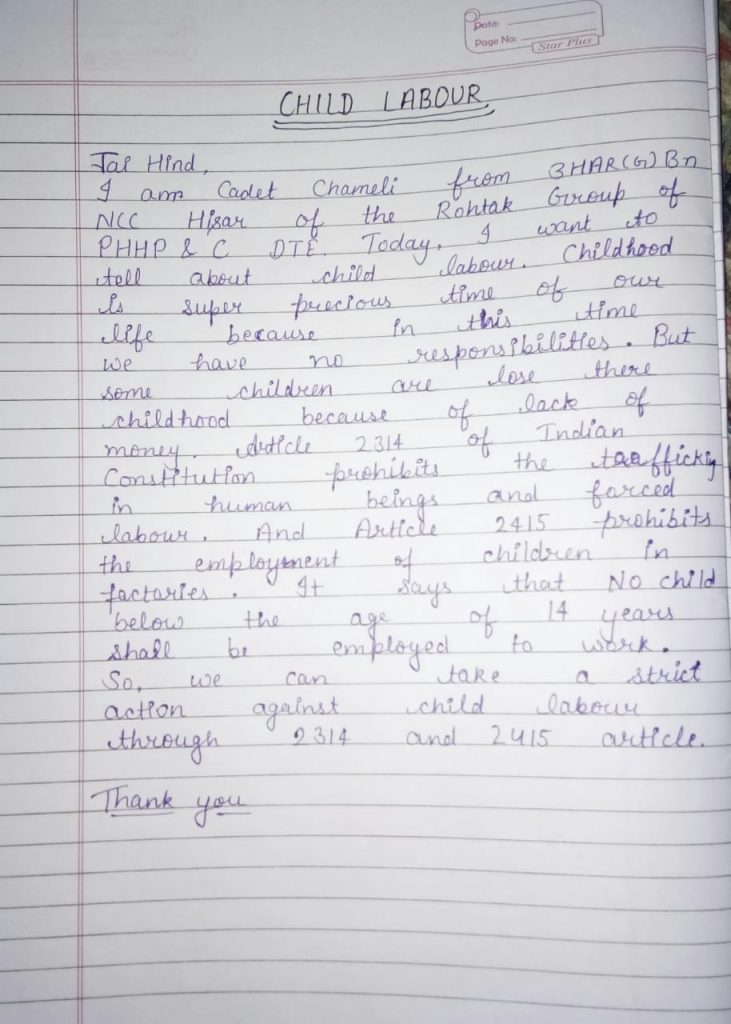 Date:
Page No:
Star Plus
CHILD LABOUR
Jai Hind,
I am Cadet Chameli from 3HAR(G)Bn
NCC Hisar of the Rohtak Group of
PHHP & C DTE. Today, I want to
tell about child labour. Childhood
is super precious time of our
life because in this time
we have no responsibilities. But
some children are lose there
childhood because of lack of
money. Article 2314 of Indian
Constitution prohibits the trafficking
in human beings and forced
labour. And Article 2415 prohibits
the employment of children in
factories. It says that No child
below the age of 14 years
shall be employed to work.
So, we can take a strict
action against child labour
through 2314 and 2415 article.
Thank you